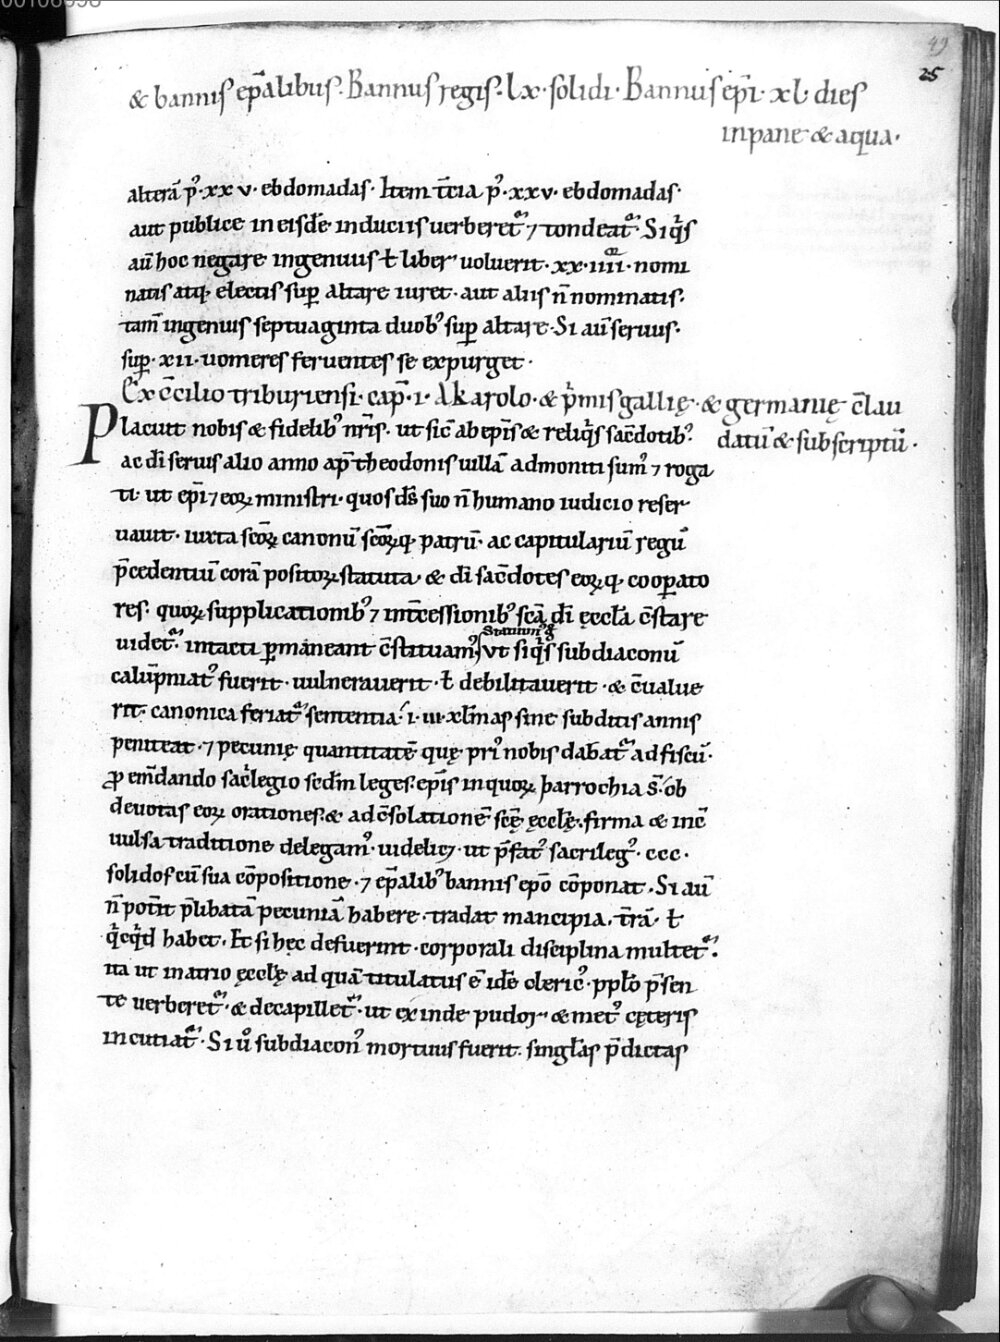 49
25
& bannis ep̄alibus. Bannus regis. lx. solidi. Bannus ep̄i. xl. dies
in pane & aqua.
alterā p̄. xxv. ebdomadas. Item t̄cia p̄. xxv. ebdomadas.
aut publice in eisdē induciis verberet᷑ ⁊ tondeat᷑. Si q̄s
aū hoc negare ingenuus ł liber uoluerit. xx. iiii. nomi
natis atq; electis sup̄ altare iuret. aut aliis n̄ nominatis.
tam̄ ingenuis septuaginta duob; sup̄ altare. Si aū seruus.
sup̄. xii. uomeres feruentes se expurget.
Ex c̄cilio triburiensi. cap̄. i. A karolo. & p̄mis gallię. & germanię c̄lau
datū & subscriptū.
Placuit nobis & fidelib; nr̄is. ut sic̄ ab ep̄is & reliq̄s sac̄dotib;
ac di seruis alio anno ap̄ theodonis uillā admoniti sum; ⁊ roga
ti. ut ep̄i ⁊ eoꝝ ministri. quos ds̄ suo n̄ humano iudicio reser
uauit. iuxta scōꝝ canonū scōꝝq; patrū. ac capitulariū regū
p̄cedentiū corā positoꝝ statuta. & di sac̄dotes eoꝝq; coopato
res. quoꝝ supplicationib; ⁊ int̄cessionib; sc̄a di ęccl̄a c̄stare
uidet᷑. intacti ꝑmaneant c̄stituam;
Statuim; &
vt siq̄s subdiaconū
calūpniat; fuerit. uulnerauerit. ł debilitauerit. & c̄ualue
rit. canonica feriat᷑ sententia. i. ui. xl̄mas sine subditis annis
peniteat. ⁊ pecunię quantitatē quę pri; nobis dabat᷑ ad fiscū.
ꝓ em̄dando sac̄legio sedm̄ leges. ep̄is in quoꝝ parrochia s̄. ob
deuotas eoꝝ orationes. & ad c̄solationē sc̄ę ęccl̄ę. firma & inc̄
uulsa traditione delegam;. uidelicꝫ. ut p̄fat; sacrileg;. ccc.
solidos cū sua cōpositione. ⁊ ep̄alib; bannis ep̄o cōponat. Si aū
n̄ potit̄ p̄libatā pecuniā habere. tradat mancipia. t̄rā. ł
q̄cq̄d habet. Et si hęc defuerint. corporali disciplina multet᷑.
ita ut in atrio ęccl̄ę ad quā titulatus ē idē cleric;. ppl̄o p̄sen
te verberet᷑. & decapillet᷑. ut exinde pudor & met; cęteris
incutiat᷑. Si ů subdiacon; mortuus fuerit. singl̄as p̄dictas